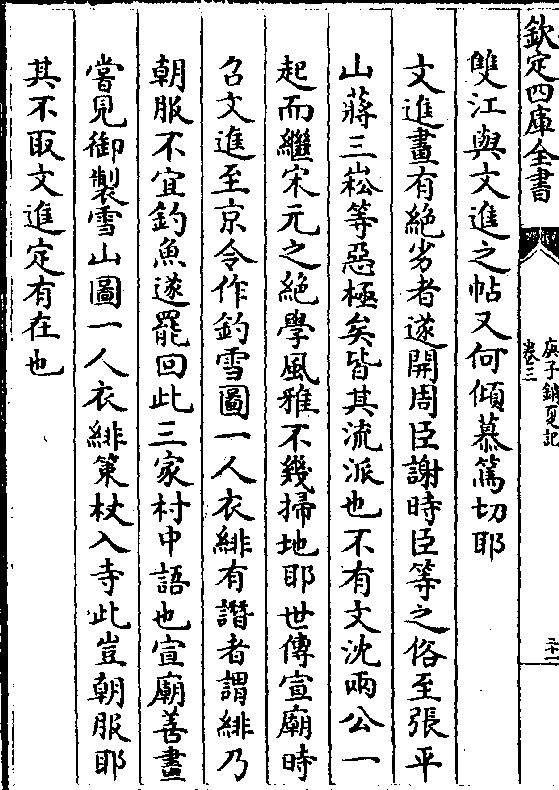 欽定四庫全書
庚子銷夏記
卷三
二十一
雙江與文進之帖又何傾慕篤切耶
文進畫有絶劣者遂開周臣謝時臣等之俗至張平
山蔣三崧等惡極矣皆其流派也不有文沈兩公一
起而繼宋元之絶學風雅不幾掃地耶世傳宣廟時
召文進至京令作釣雪圖一人衣緋有譖者謂緋乃
朝服不宜釣魚遂罷回此三家村中語也宣廟善畫
嘗見御製雪山圖一人衣緋策杖入寺此豈朝服耶
其不取文進定有在也